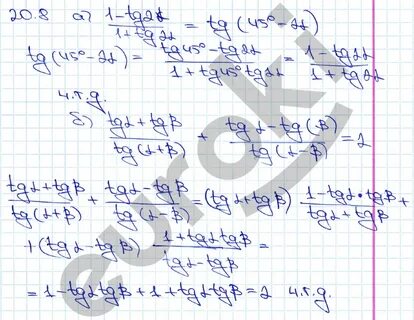 20.8 а) (1-tg2α)/(1+tg2α) = tg(45°-2α)
tg(45°-2α) = (tg45°-tg2α)/(1+tg45°tg2α) = (1-tg2α)/(1+tg2α)
ч.т.д.
б) (tgα+tgβ)/(tg(α+β)) + (tgα-tg(β))/(tg(α-β)) = 2
(tgα+tgβ)/(tg(α+β)) + (tgα-tgβ)/(tg(α-β)) = (tgα+tgβ) · (1-tgα·tgβ)/(tgα+tgβ) +
+ (tgα-tgβ) · (1+tgαtgβ)/(tgα-tgβ) =
= 1-tgαtgβ+1+tgαtgβ = 2 ч.т.д.
euroki